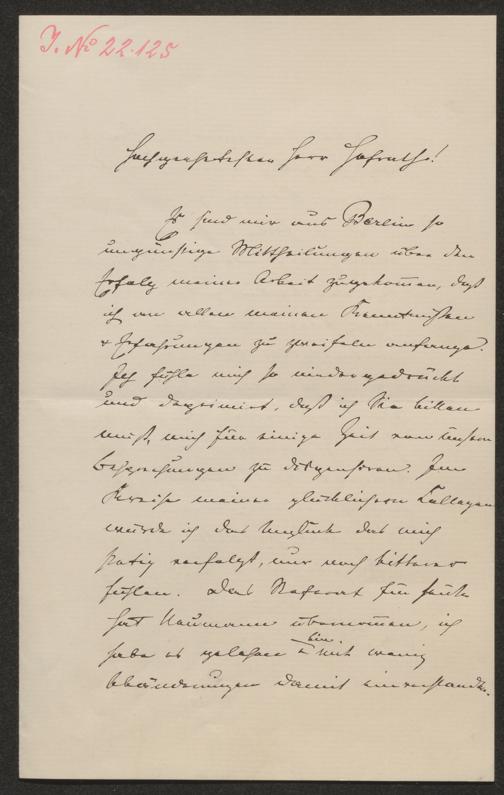 J. No 22.125
Hochgeehrtester Herr Hofrath!
Es sind mir aus Berlin so
ungünstige Mittheilungen über den
Erfolg meiner Arbeit zugekom̅en, daß
ich an allen meinen Kenntnissen
& Erfahrungen zu zweifeln anfange.
Ich fühle mich so niedergedrückt
und deprimirt, daß ich Sie bitten
muß, mich für einige Zeit von unseren
Besprechungen zu dispensiren. Im
Kreise meiner glücklichern Collegen
würde ich das Unglück das mich
stetig verfolgt, nur noch bitterer
fühlen. Das Referat für heute
hat Naumann übernom̅en, ich
habe es gelesen & bin mit wenig
Abänderungen damit einverstanden.